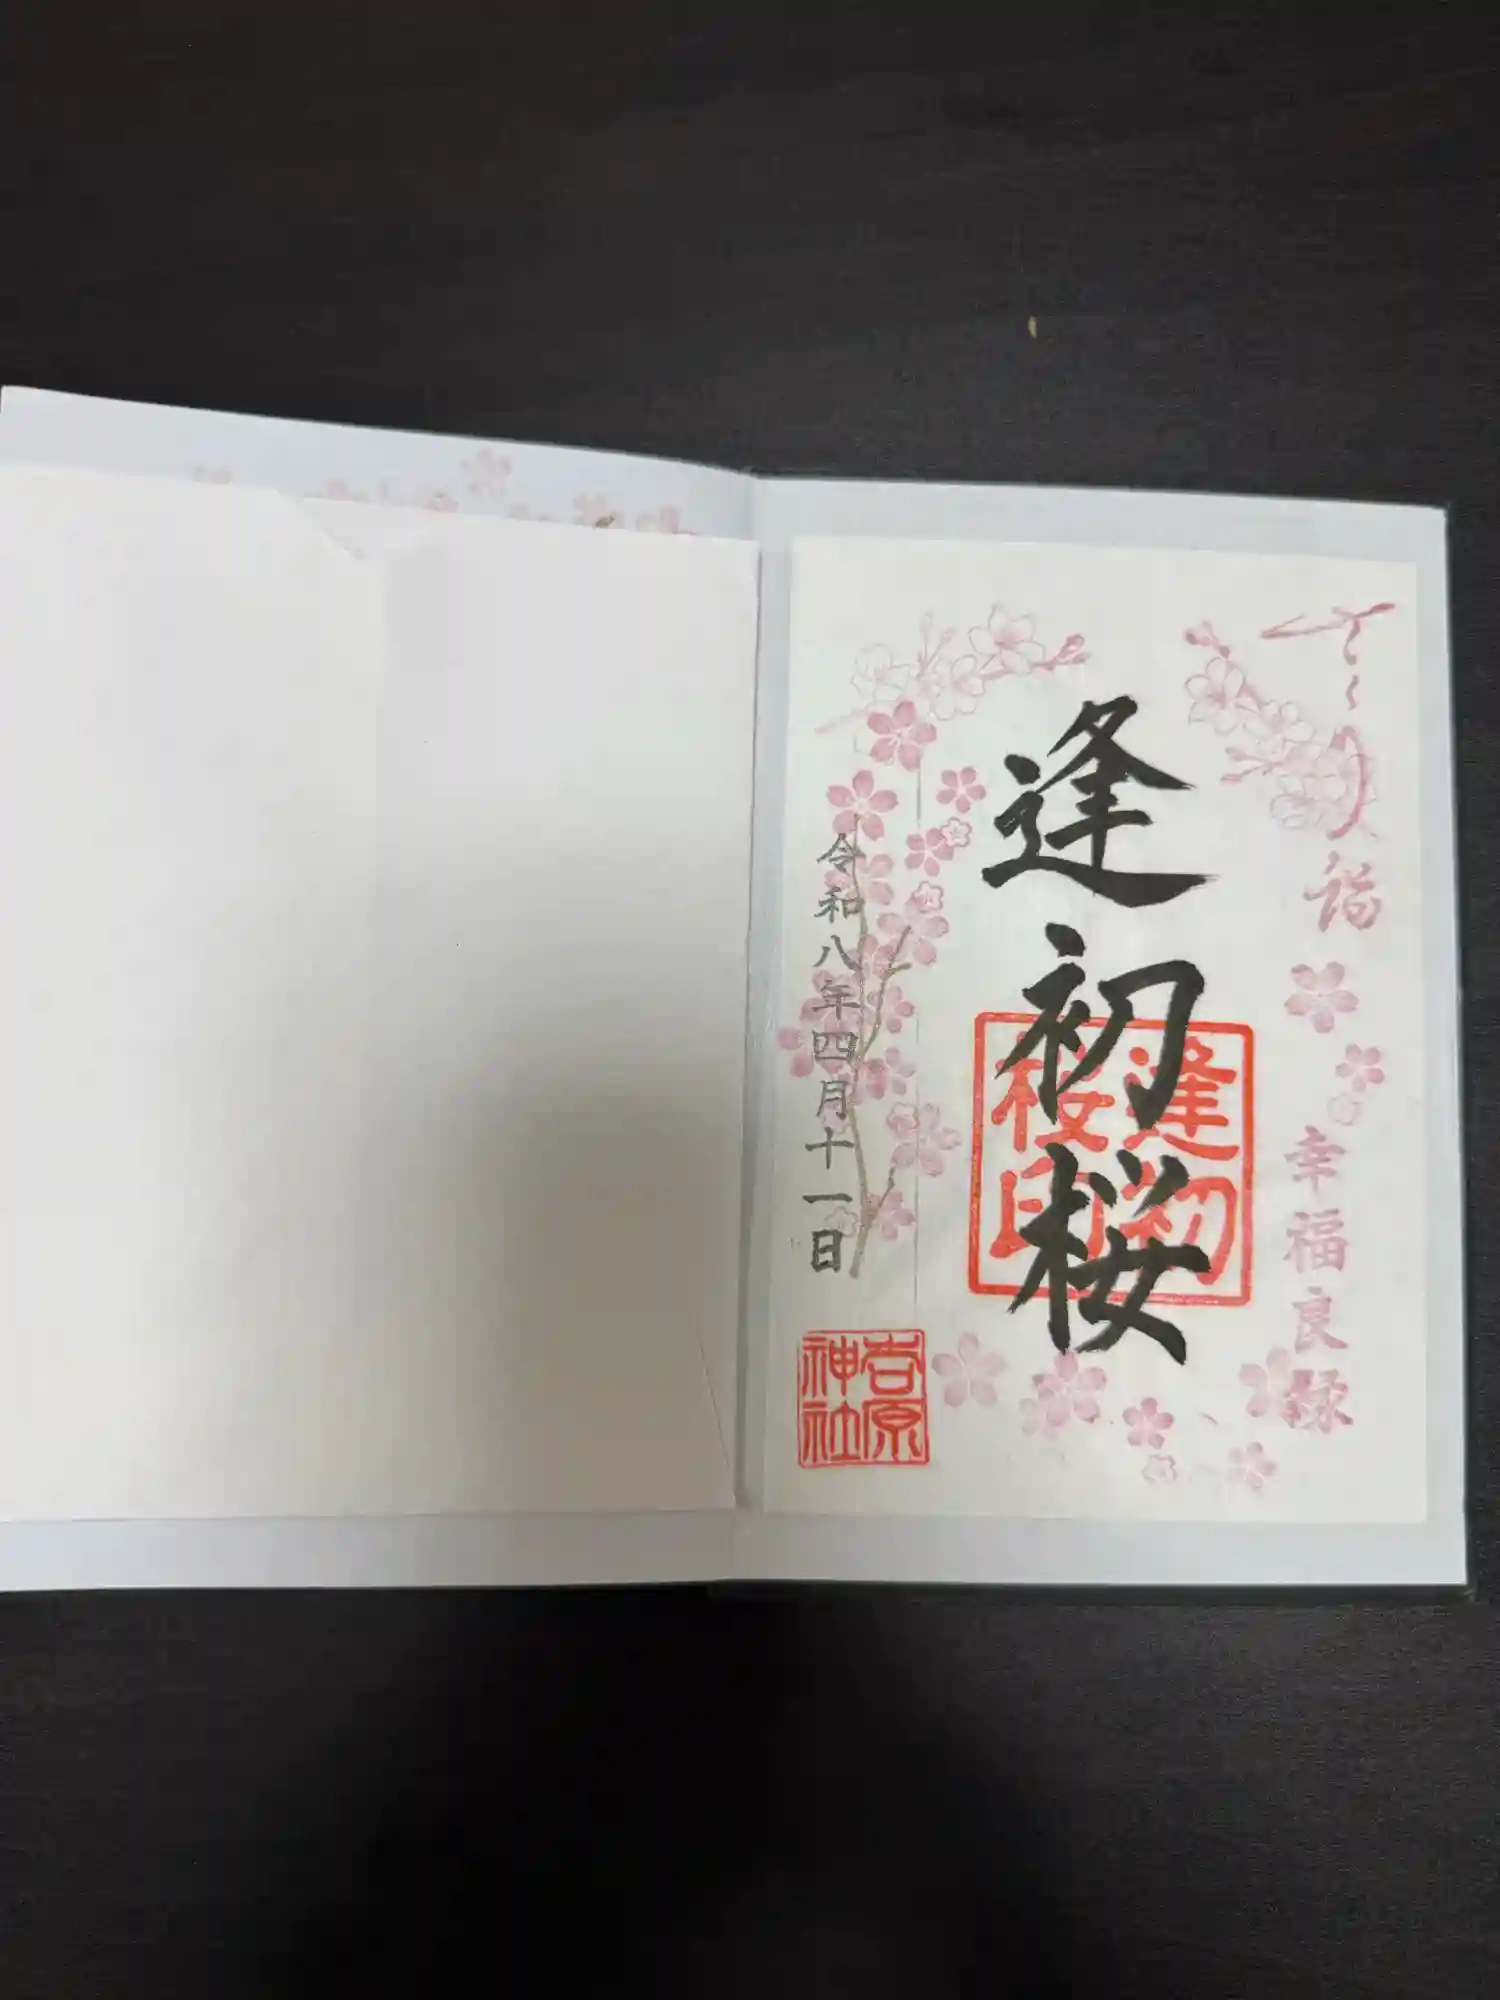 さくら詣
幸福良縁
逢初桜
逢初桜印
令和八年四月十一日
吉原神社